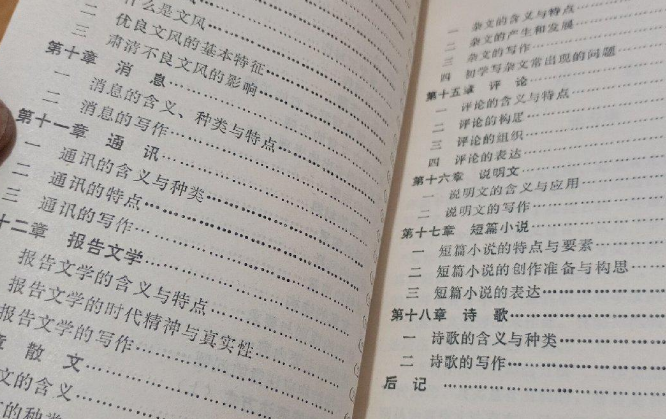 什么是文风
三 优良文风的基本特征
肃清不良文风的影响
第十章 消息
一 消息的含义、种类与特点
二 消息的写作
第十一章 通讯
一 通讯的含义与种类
二 通讯的特点
三 通讯的写作
十二章 报告文学
报告文学的含义与特点
报告文学的时代精神与真实性
报告文学的写作
章 散文
文的含义
文的种类
一 杂文的含义与特点
二 杂文的产生和发展
三 杂文的写作
四 初学写杂文常出现的问题
第十五章 评论
一 评论的含义与特点
二 评论的构思
三 评论的组织
四 评论的表达
第十六章 说明文
一 说明文的含义与应用
二 说明文的写作
第十七章 短篇小说
一 短篇小说的特点与要素
二 短篇小说的创作准备与构思
三 短篇小说的表达
第十八章 诗歌
一 诗歌的含义与种类
二 诗歌的写作
后记